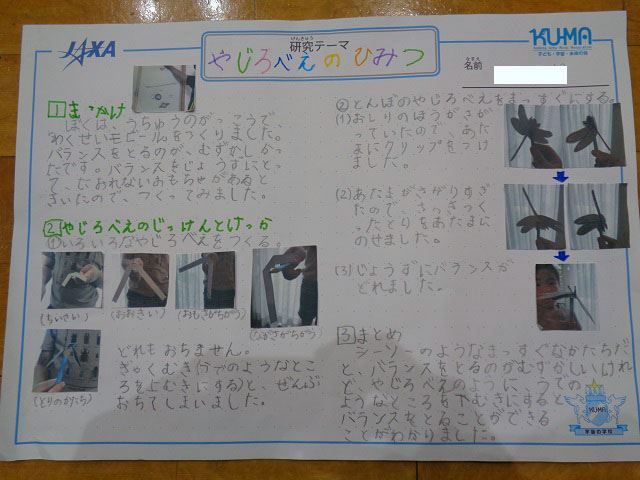 JAXA
けんきゅう
研究テーマ
やじろべえのひみつ
KUMA
子ども・宇宙・未来の会
なまえ
名前
1 きっかけ
ぼくは、うちゅうのがっこうで、
わくせいモビールをつくりました。
バランスをとるのが、むずかしかっ
たです。バランスをじょうずにとっ
て、たおれないおもちゃがあると
きいたので、つくってみました。
2 やじろべえのじっけんとけっか
①いろいろなやじろべえをつくる。
(ちいさい)
(おおきい)
(おもさがちがう)
(ながさがちがう)
(とりのかたち)
どれもおちません。
ぎゃくむき(うでのようなとこ
ろを上むきにする)と、ぜんぶ
おちてしまいました。
②とんぼのやじろべえをまっすぐにする。
(1)おしりのほうがさが
っていたので、あた
まにクリップをつけ
ました。
(2)あたまがさがりすぎ
たので、さっきつく
ったとりをあたまに
のせました。
(3)じょうずにバランスが
とれました。
3 まとめ
シーソーのようなまっすぐなかたちだ
と、バランスをとるのがむずかしいけれ
ど、やじろべえのように、うでの
ようなところを下むきにすると
バランスをとることができる
ことがわかりました。
KUMA
宇宙の学校